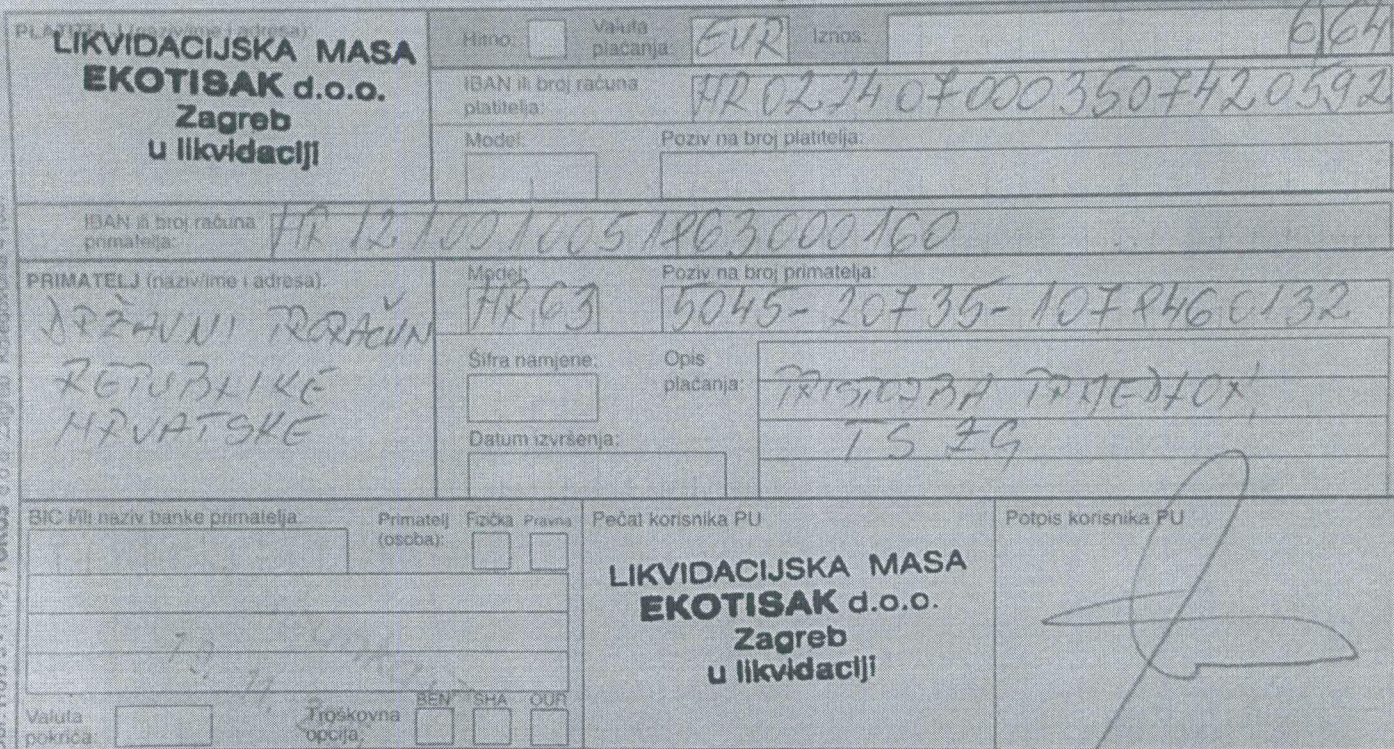 PLATITELJ (naziv/ime i adresa):
LIKVIDACIJSKA MASA
EKOTISAK d.o.o.
Zagreb
u likvidaciji
Hitno:
Valuta plaćanja:
EUR
Iznos:
6,64
IBAN ili broj računa platitelja:
HR0224070003507420592
Model:
Poziv na broj platitelja:
IBAN ili broj računa primatelja:
HR1210010051863000160
PRIMATELJ (naziv/ime i adresa):
DRŽAVNI PRORAČUN
REPUBLIKE
HRVATSKE
Model:
HR63
Poziv na broj primatelja:
5045-20735-1078460132
Šifra namjene:
Opis plaćanja:
PRISTOJBA PRIJEDLOX,
TS ZG
Datum izvršenja:
BIC i/ili naziv banke primatelja:
Primatelj (osoba):
Fizička
Pravna
Pečat korisnika PU
LIKVIDACIJSKA MASA
EKOTISAK d.o.o.
Zagreb
u likvidaciji
Potpis korisnika PU
Valuta pokrića:
Troškovna opcija:
BEN
SHA
OUR